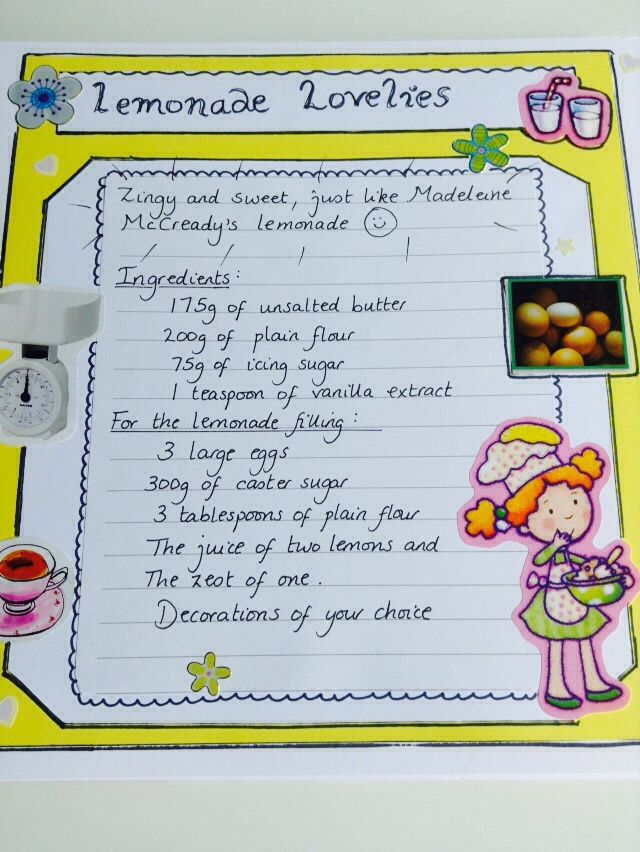 Lemonade Lovelies
Zingy and sweet, just like Madeleine
McCready's lemonade
Ingredients:
175g of unsalted butter
200g of plain flour
75g of icing sugar
1 teaspoon of vanilla extract
For the lemonade filling:
3 large eggs
300g of caster sugar
3 tablespoons of plain flour
The juice of two lemons and
The zest of one.
Decorations of your choice